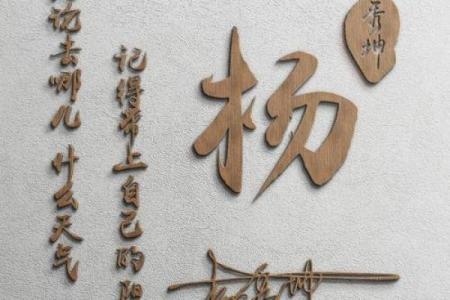 论去哪儿 什么天气
记得带上自己的阳
杨
坤